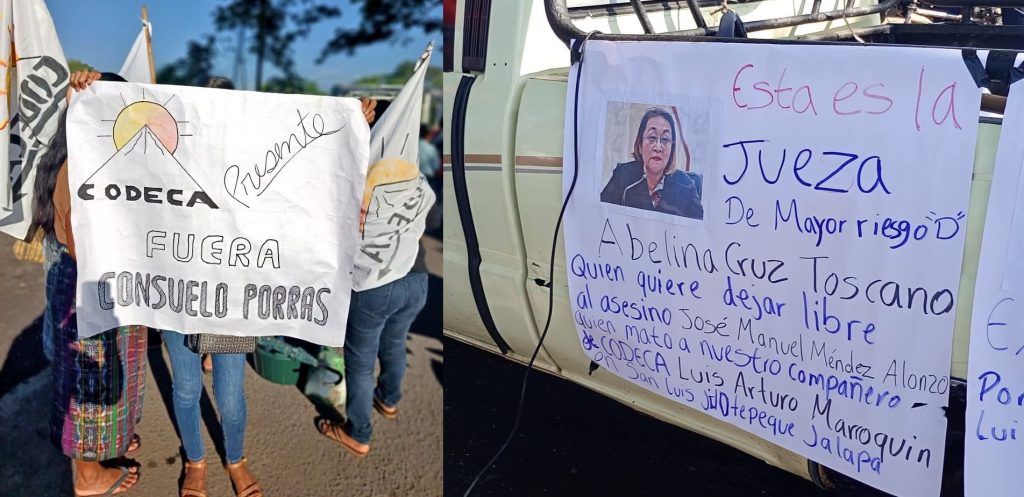 CODECA
Presente
FUERA
CONSUELO PORRAS
Esta es la
Jueza
De Mayor riesgo "D"
Abelina Cruz Toscano
Quien quiere dejar libre
al asesino José Manuel Méndez Alonzo
quien mato a nuestro compañero
de CODECA Luis Arturo Marroquin
en San Luis Jilotepeque Jalapa
Por
Lui